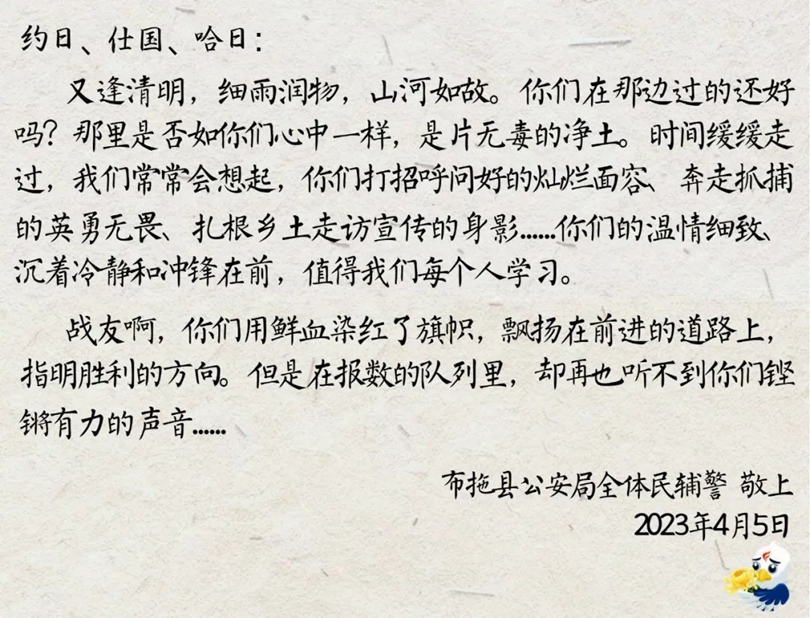 约日、仕国、哈日：
又逢清明，细雨润物，山河如故。你们在那边过的还好
吗？那里是否如你们心中一样，是片无毒的净土。时间缓缓走
过，我们常常会想起，你们打招呼问好的灿烂面容、奔走抓捕
的英勇无畏、扎根乡土走访宣传的身影……你们的温情细致、
沉着冷静和冲锋在前，值得我们每个人学习。
战友啊，你们用鲜血染红了旗帜，飘扬在前进的道路上，
指明胜利的方向。但是在报数的队列里，却再也听不到你们铿
锵有力的声音……
布拖县公安局全体民辅警 敬上
2023年4月5日